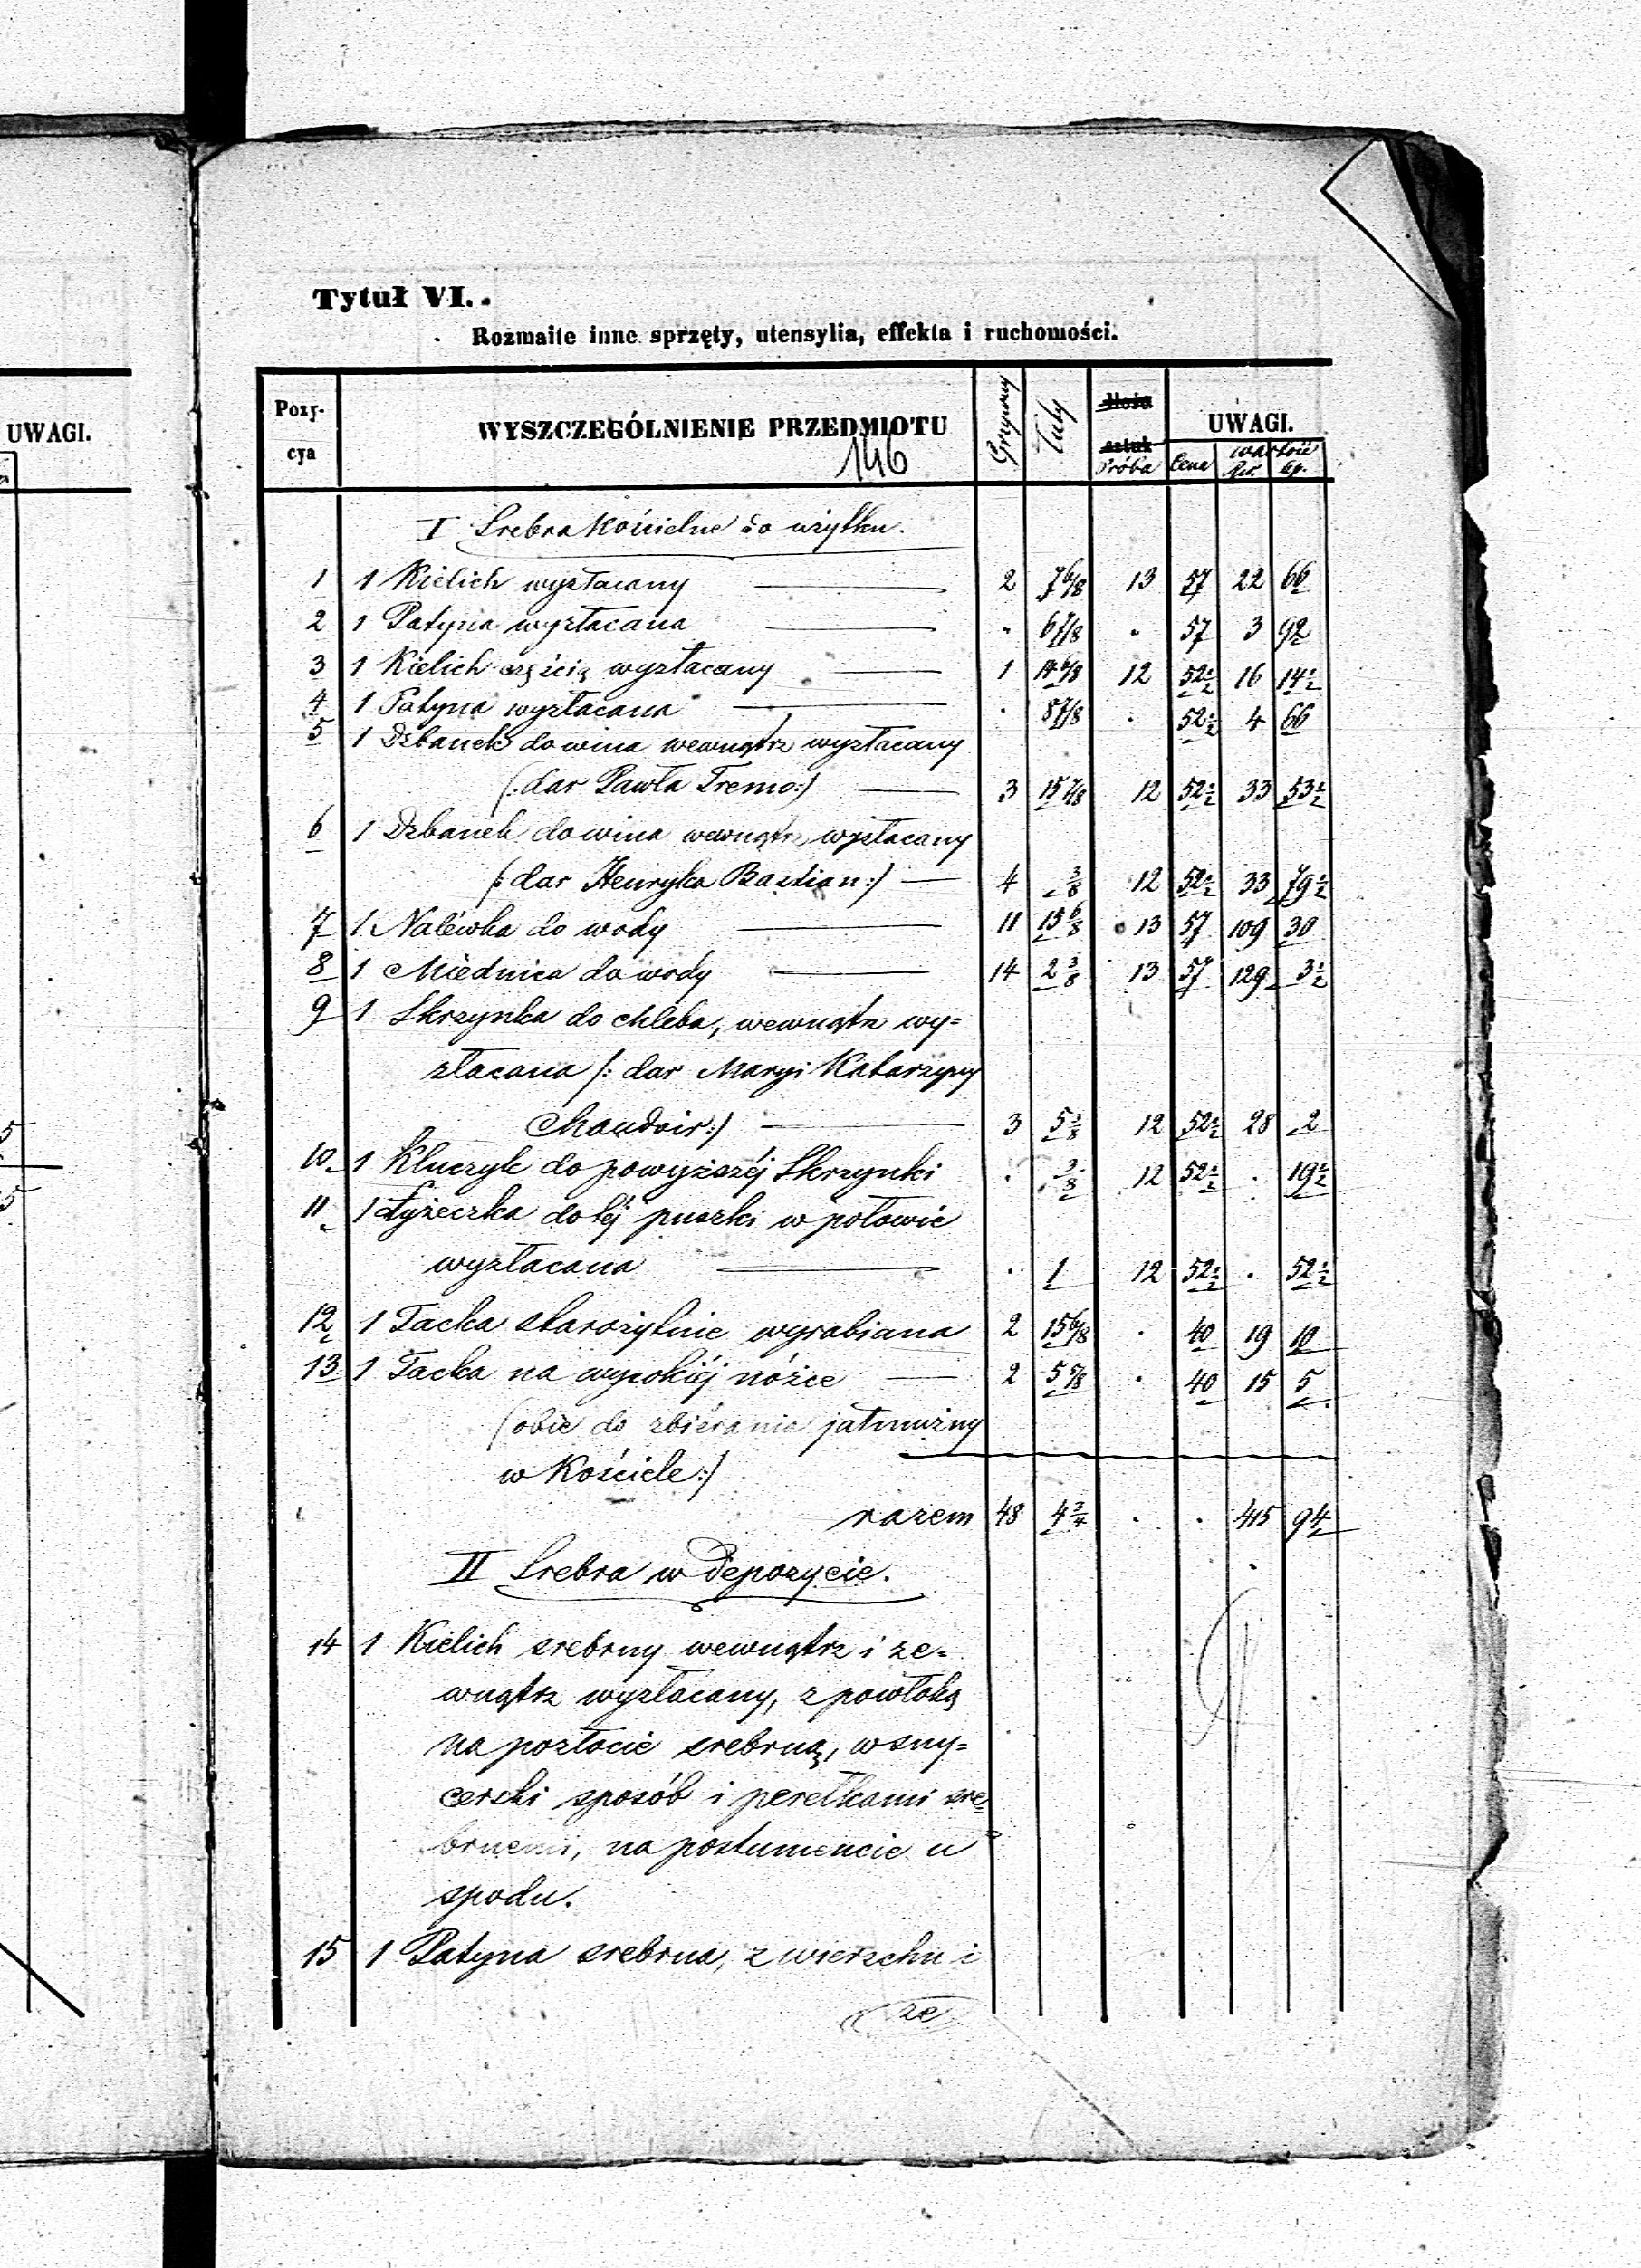 UWAGI.
5
5
Tytuł VI.
Rozmaite inne sprzęty, utensylia, effekta i ruchomości.
Pozy-cya WYSZCZEGÓLNIENIE PRZEDMIOTU Grzywny Łuty Ilość sztuk Próba UWAGI. Cena wartość Rsr. kp.
146
I Srebra Kościelne do użytku.
1 1 Kielich wyzłacany — 2 7 6/8 13 57 22 66
2 1 Patyna wyzłacana — . 6 7/8 . 57 3 92
3 1 Kielich częścią wyzłacany — 1 14 6/8 12 52 1/2 16 14 1/2
4 1 Patyna wyzłacana — . 8 7/8 . 52 1/2 4 66
5 1 Dzbanek do wina wewnątrz wyzłacany
(: dar Pawła Tremo :) — 3 15 7/8 12 52 1/2 33 53 1/2
6 1 Dzbanek do wina wewnątrz wyzłacany
(: dar Henryka Bastian :) — 4 3/8 12 52 1/2 33 79 1/2
7 1 Naléwka do wody — 11 15 6/8 13 57 109 30
8 1 Miednica do wody — 14 2 3/8 13 57 129 3 1/2
9 1 Skrzynka do chleba, wewnątrz wy=
złacana (: dar Maryi Katarzyny
Chaudoir :) — 3 5 3/8 12 52 1/2 28 2
10 1 Kluczyk do powyższéj Skrzynki . 3/8 12 52 1/2 . 19 1/2
11 1 Łyżeczka do téj puszki w połowie
wyzłacana — . 1 12 52 1/2 . 52 1/2
12 1 Tacka starożytnie wyrabiana 2 15 6/8 . 40 19 10
13 1 Tacka na wysokiéj nóżce — 2 5 5/8 . 40 15 5
(obie do zbiérania jałmużny
w Kościele :)
razem 48 4 3/4 . . 415 94
II Srebra w Depozycie.
14 1 Kielich srebrny wewnątrz i ze=
wnątrz wyzłacany, z powłoką
na pozłocie srebrną, w sny=
cerski sposób i perełkami sre=
brnemi, na postumencie u
spodu.
15 1 Patyna srebrna, z wierzchu i
ze